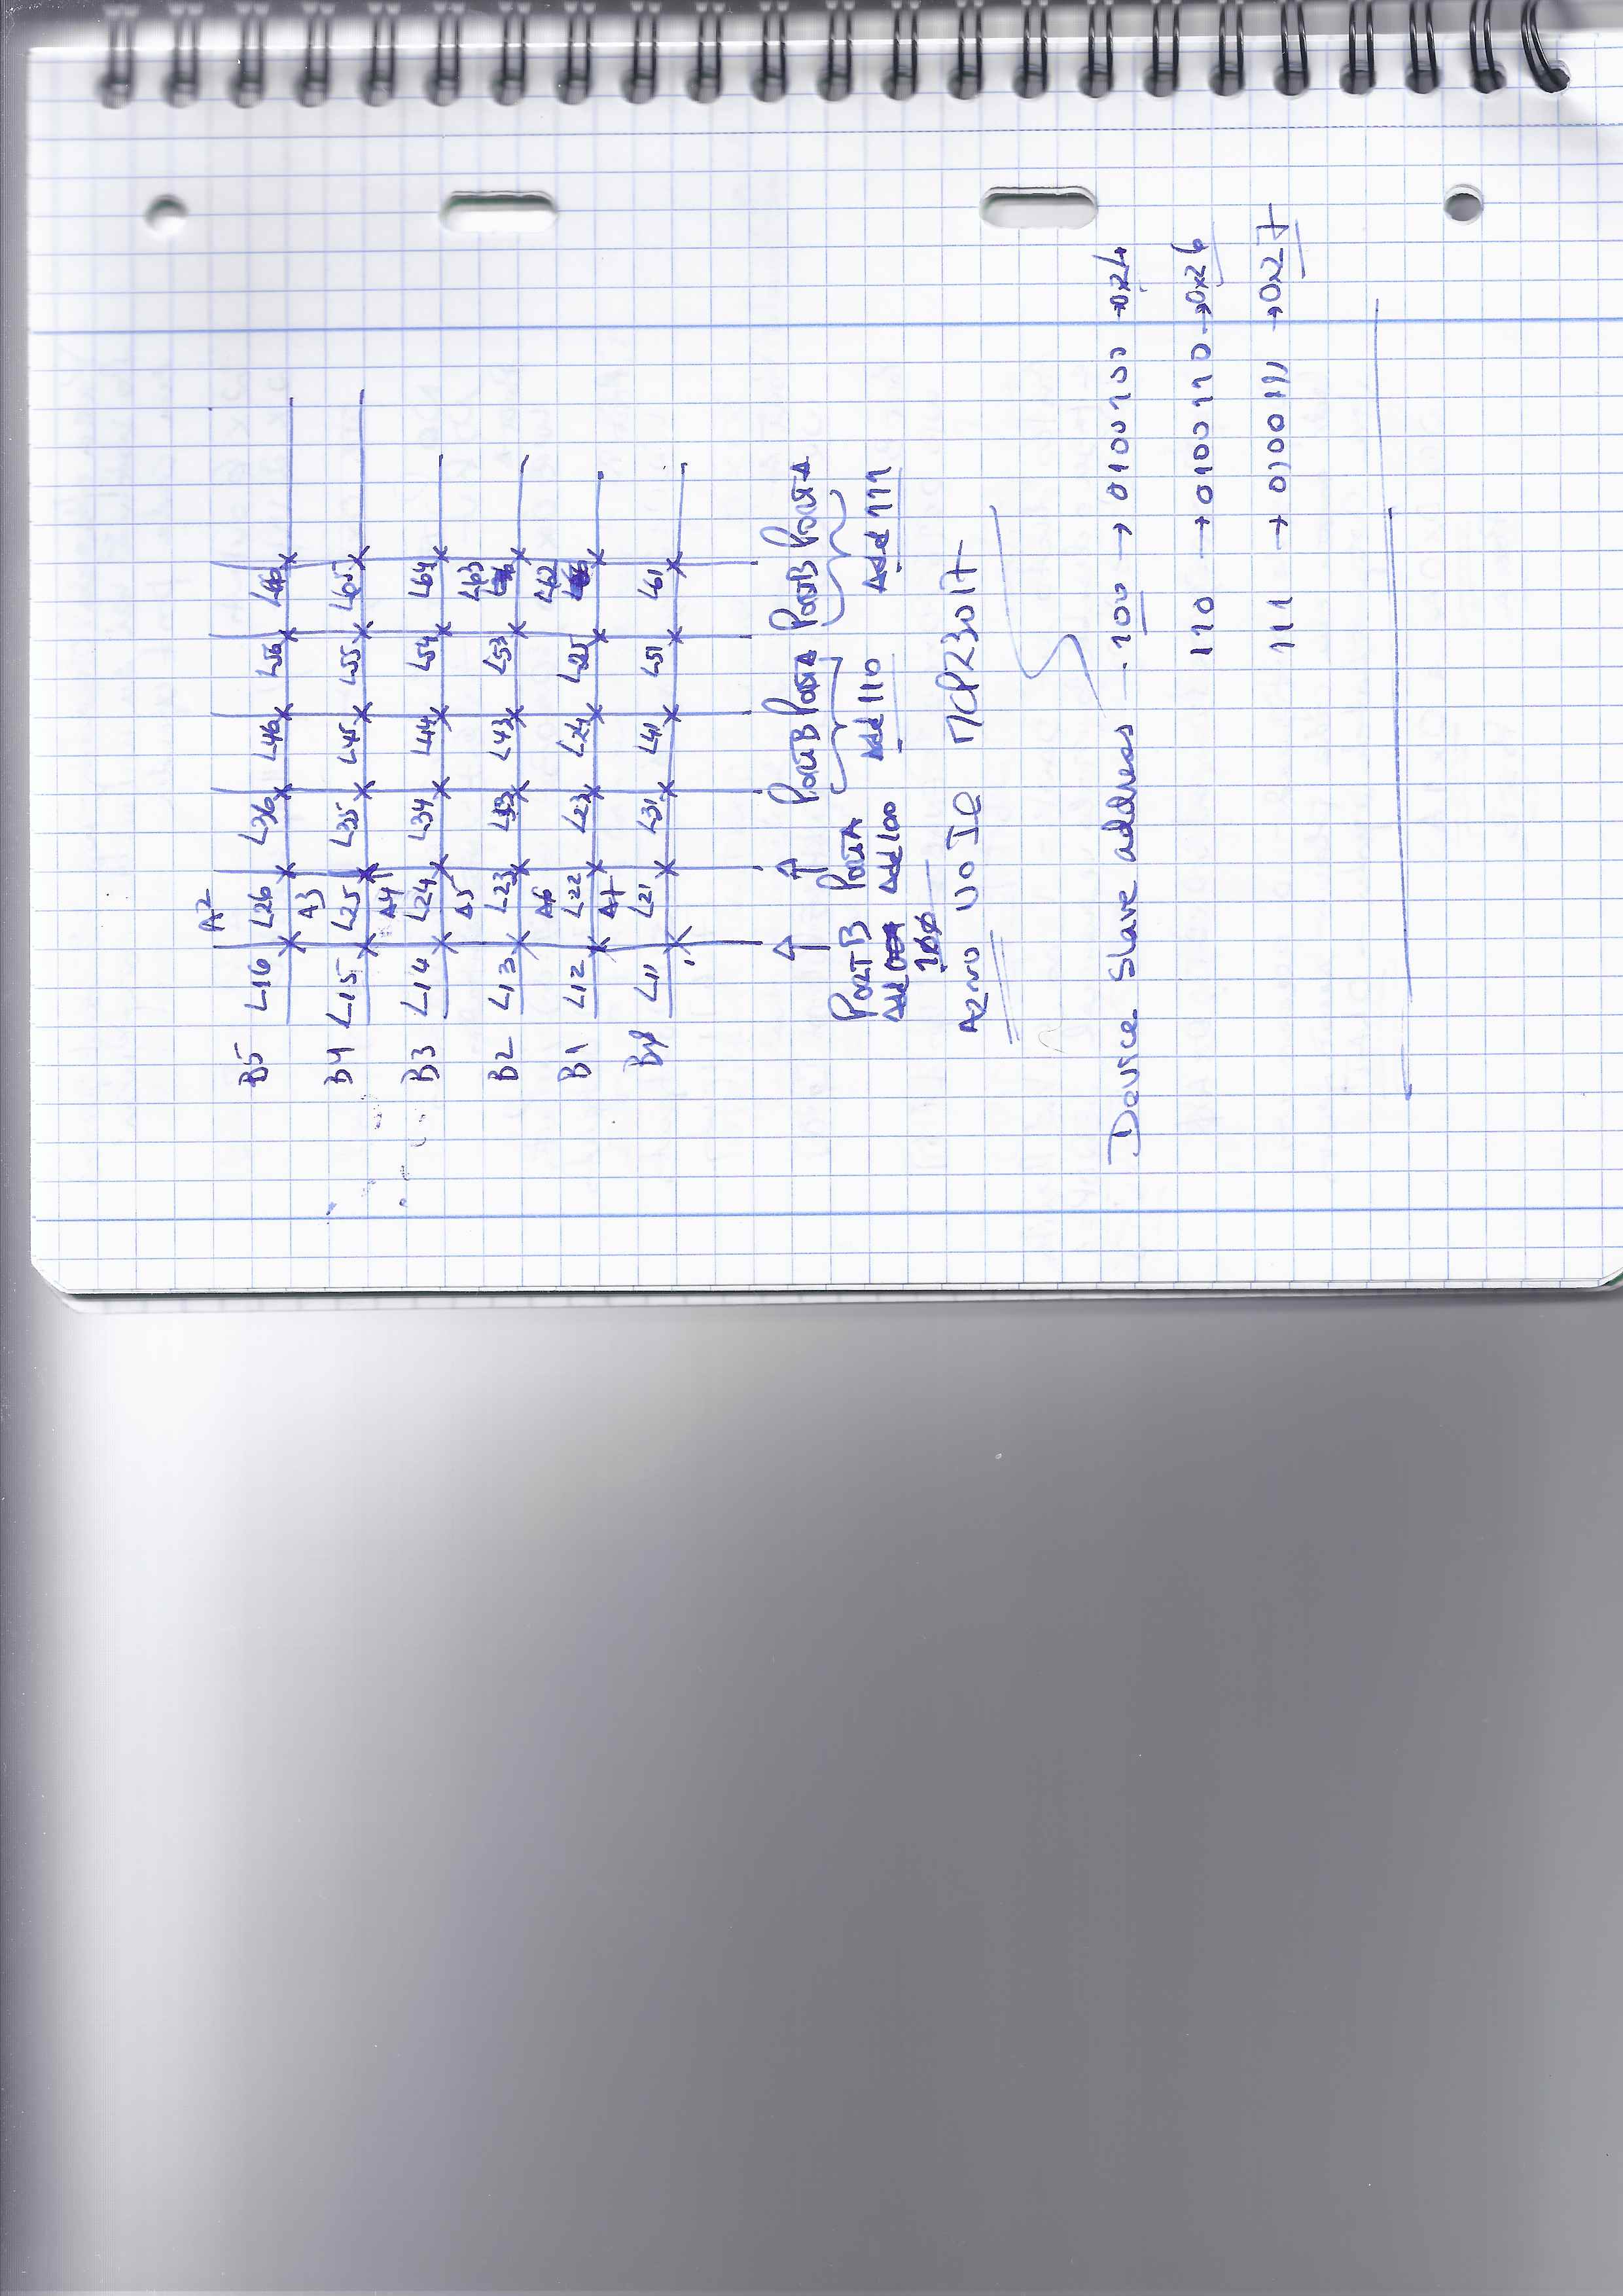 A2
B5 L16 L26 L36 L46 L56 L66
A3
B4 L15 L25 L35 L45 L55 L65
A4
B3 L14 L24 L34 L44 L54 L64
A5 L63
B2 L13 L23 L33 L43 L53
A6 L62
B1 L12 L22 L23 L24 L25
A7
L11 L21 L31 L41 L51 L61
PORTB PORTA PORTB PORTA PORTB PORTA
Add 100 Add 100 Add 110 Add 111
MCP23017
Device Slave address 100 → 0100100 → 0x24
110 → 0100110 → 0x26
111 → 0100111 → 0x27